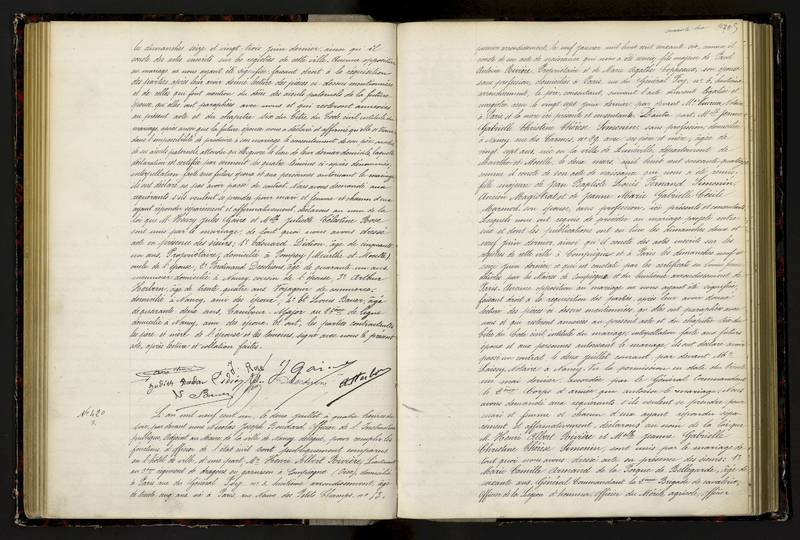 les dimanches seize et vingt trois juin dernier, ainsi qu'il
conste des actes inscrits sur les registres de cette ville. Aucune opposition
au mariage ne nous ayant été signifiée, faisant droit à la réquisition
des parties, après leur avoir donné lecture des pièces ci-dessus mentionnées
et de celles qui font mention du décès des aïeuls paternels de la future
épouse, qu'elles ont paraphées avec nous et qui resteront annexées
au présent acte et du chapitre six du titre du Code civil intitulé du
mariage, après aussi que la future épouse nous a déclaré et affirmé qu'elle se trouve
dans l'impossibilité de produire à son mariage le consentement de son père,
déclaration et certifiée par serment des quatre témoins ci-après dénommés,
interpellation faite aux futurs époux et aux personnes autorisant le mariage
ils ont déclaré ne pas avoir passé de contrat. Nous avons demandé aux
requérants s'ils veulent se prendre pour mari et femme et chacun d'eux
ayant répondu séparément et affirmativement, déclarons au nom de la
loi que M. Henry Jules Goire et Melle Juliette Célestine Rose
sont unis par le mariage, de tout quoi nous avons dressé
acte en présence des sieurs, 1° Edouard Didion, âgé de cinquante
un ans, Propriétaire, domicilié à Pompey (Meurthe et Moselle)
oncle de l'épouse, 2° Ferdinand âgé de quarante un ans
domicilié à Nancy, cousin de l'épouse, 3° Arthur
âgé de trente quatre ans Voyageur de commerce,
domicilié à Nancy, ami des époux, 4° et Louis Bauer, âgé
de quarante deux ans, Tambour Major au de ligne
domicilié à Nancy, ami des époux. Et ont, les parties contractantes
les père et mère de l'épouse et les témoins, signé avec nous le présent
acte, après lecture et collation faites.
J. Rose J Goire
Didion
Bauer
N° 420
L'an mil neuf cent un, le deux juillet à quatre heures du
soir, par devant nous Nicolas Joseph Boudard, Officier de l'Instruction
publique, Adjoint au Maire de la ville de Nancy, délégué pour remplir les
fonctions d'officier de l'état civil sont publiquement comparus
en l'hôtel de ville, d'une part, Mr Henri Albert Rivière, Lieutenant
au régiment de dragons en garnison à Compiègne (Oise), domicilié
à Paris rue du Général Foy n° 6 huitième arrondissement, âgé
de trente cinq ans né à Paris, rue Neuve des Petits Champs, n° 13.
premier arrondissement, le neuf janvier mil huit cent soixante six, comme il
conste de son acte de naissance qui nous a été remis, fils majeur de Paul
Antoine Rivière, Propriétaire et de Marie Agathe Coppeaux, son épouse
sans profession, domiciliés à Paris, rue du Général Foy, n° 6, huitième
arrondissement, le père consentant, suivant l'acte dûment légalisé et
enregistré reçu le vingt sept juin dernier par devant Me Notaire
à Paris et la mère ici présente et consentante. D'autre part, Melle Jeanne
Gabrielle Christine Thérèse Simonin, sans profession, domiciliée
à Nancy, rue des Carmes, n° 29, avec ses père et mère, âgée de
vingt sept ans, née en la ville de Lunéville, département de
Meurthe et Moselle, le deux mars, mil huit cent soixante quatorze
comme il conste de son acte de naissance qui nous a été remis,
fille majeure de Jean Baptiste Louis Fernand Simonin,
Ancien Magistrat et de Jeanne Marie Gabrielle Cécile
Marmod, son épouse, sans profession, ici présents et consentants
Lesquels nous ont requis de procéder au mariage projeté entre
eux et dont les publications ont eu lieu les dimanches deux et
neuf juin dernier, ainsi qu'il conste des actes inscrits sur les
registres de cette ville à Compiègne et à Paris les dimanches neuf et
seize juin dernier, et qu'il est constaté par les certificats en forme
délivrés par les Maires de Compiègne et du huitième arrondissement de
Paris. Aucune opposition au mariage ne nous ayant été signifiée,
faisant droit à la réquisition des parties, après leur avoir donné
lecture des pièces ci-dessus mentionnées, qu'elles ont paraphées avec
nous et qui resteront annexées au présent acte et du chapitre six du
titre du Code civil, intitulé du mariage, interpellation faite aux futurs
époux et aux personnes autorisant le mariage, ils ont déclaré avoir
passé un contrat, le deux juillet courant, par devant Me
Notaire à Nancy. Vu la permission en date du trente
un mai dernier accordée par le Général Commandant
le 2ème Corps d'armée pour autoriser le mariage. Nous
avons demandé aux requérants s'ils veulent se prendre pour
mari et femme et chacun d'eux ayant répondu sépa-
rément et affirmativement, déclarons au nom de la loi que
M. Henri Albert Rivière et Melle Jeanne Gabrielle
Christine Thérèse Simonin, sont unis par le mariage, de
tout quoi nous avons dressé acte en présence des sieurs, 1°
Marie Camille Armand de la Forgue de Bellegarde, âgé de
soixante ans, Général Commandant la 2ème Brigade de cavalerie,
Officier de la Légion d'honneur, Officier du Mérite agricole, Officier